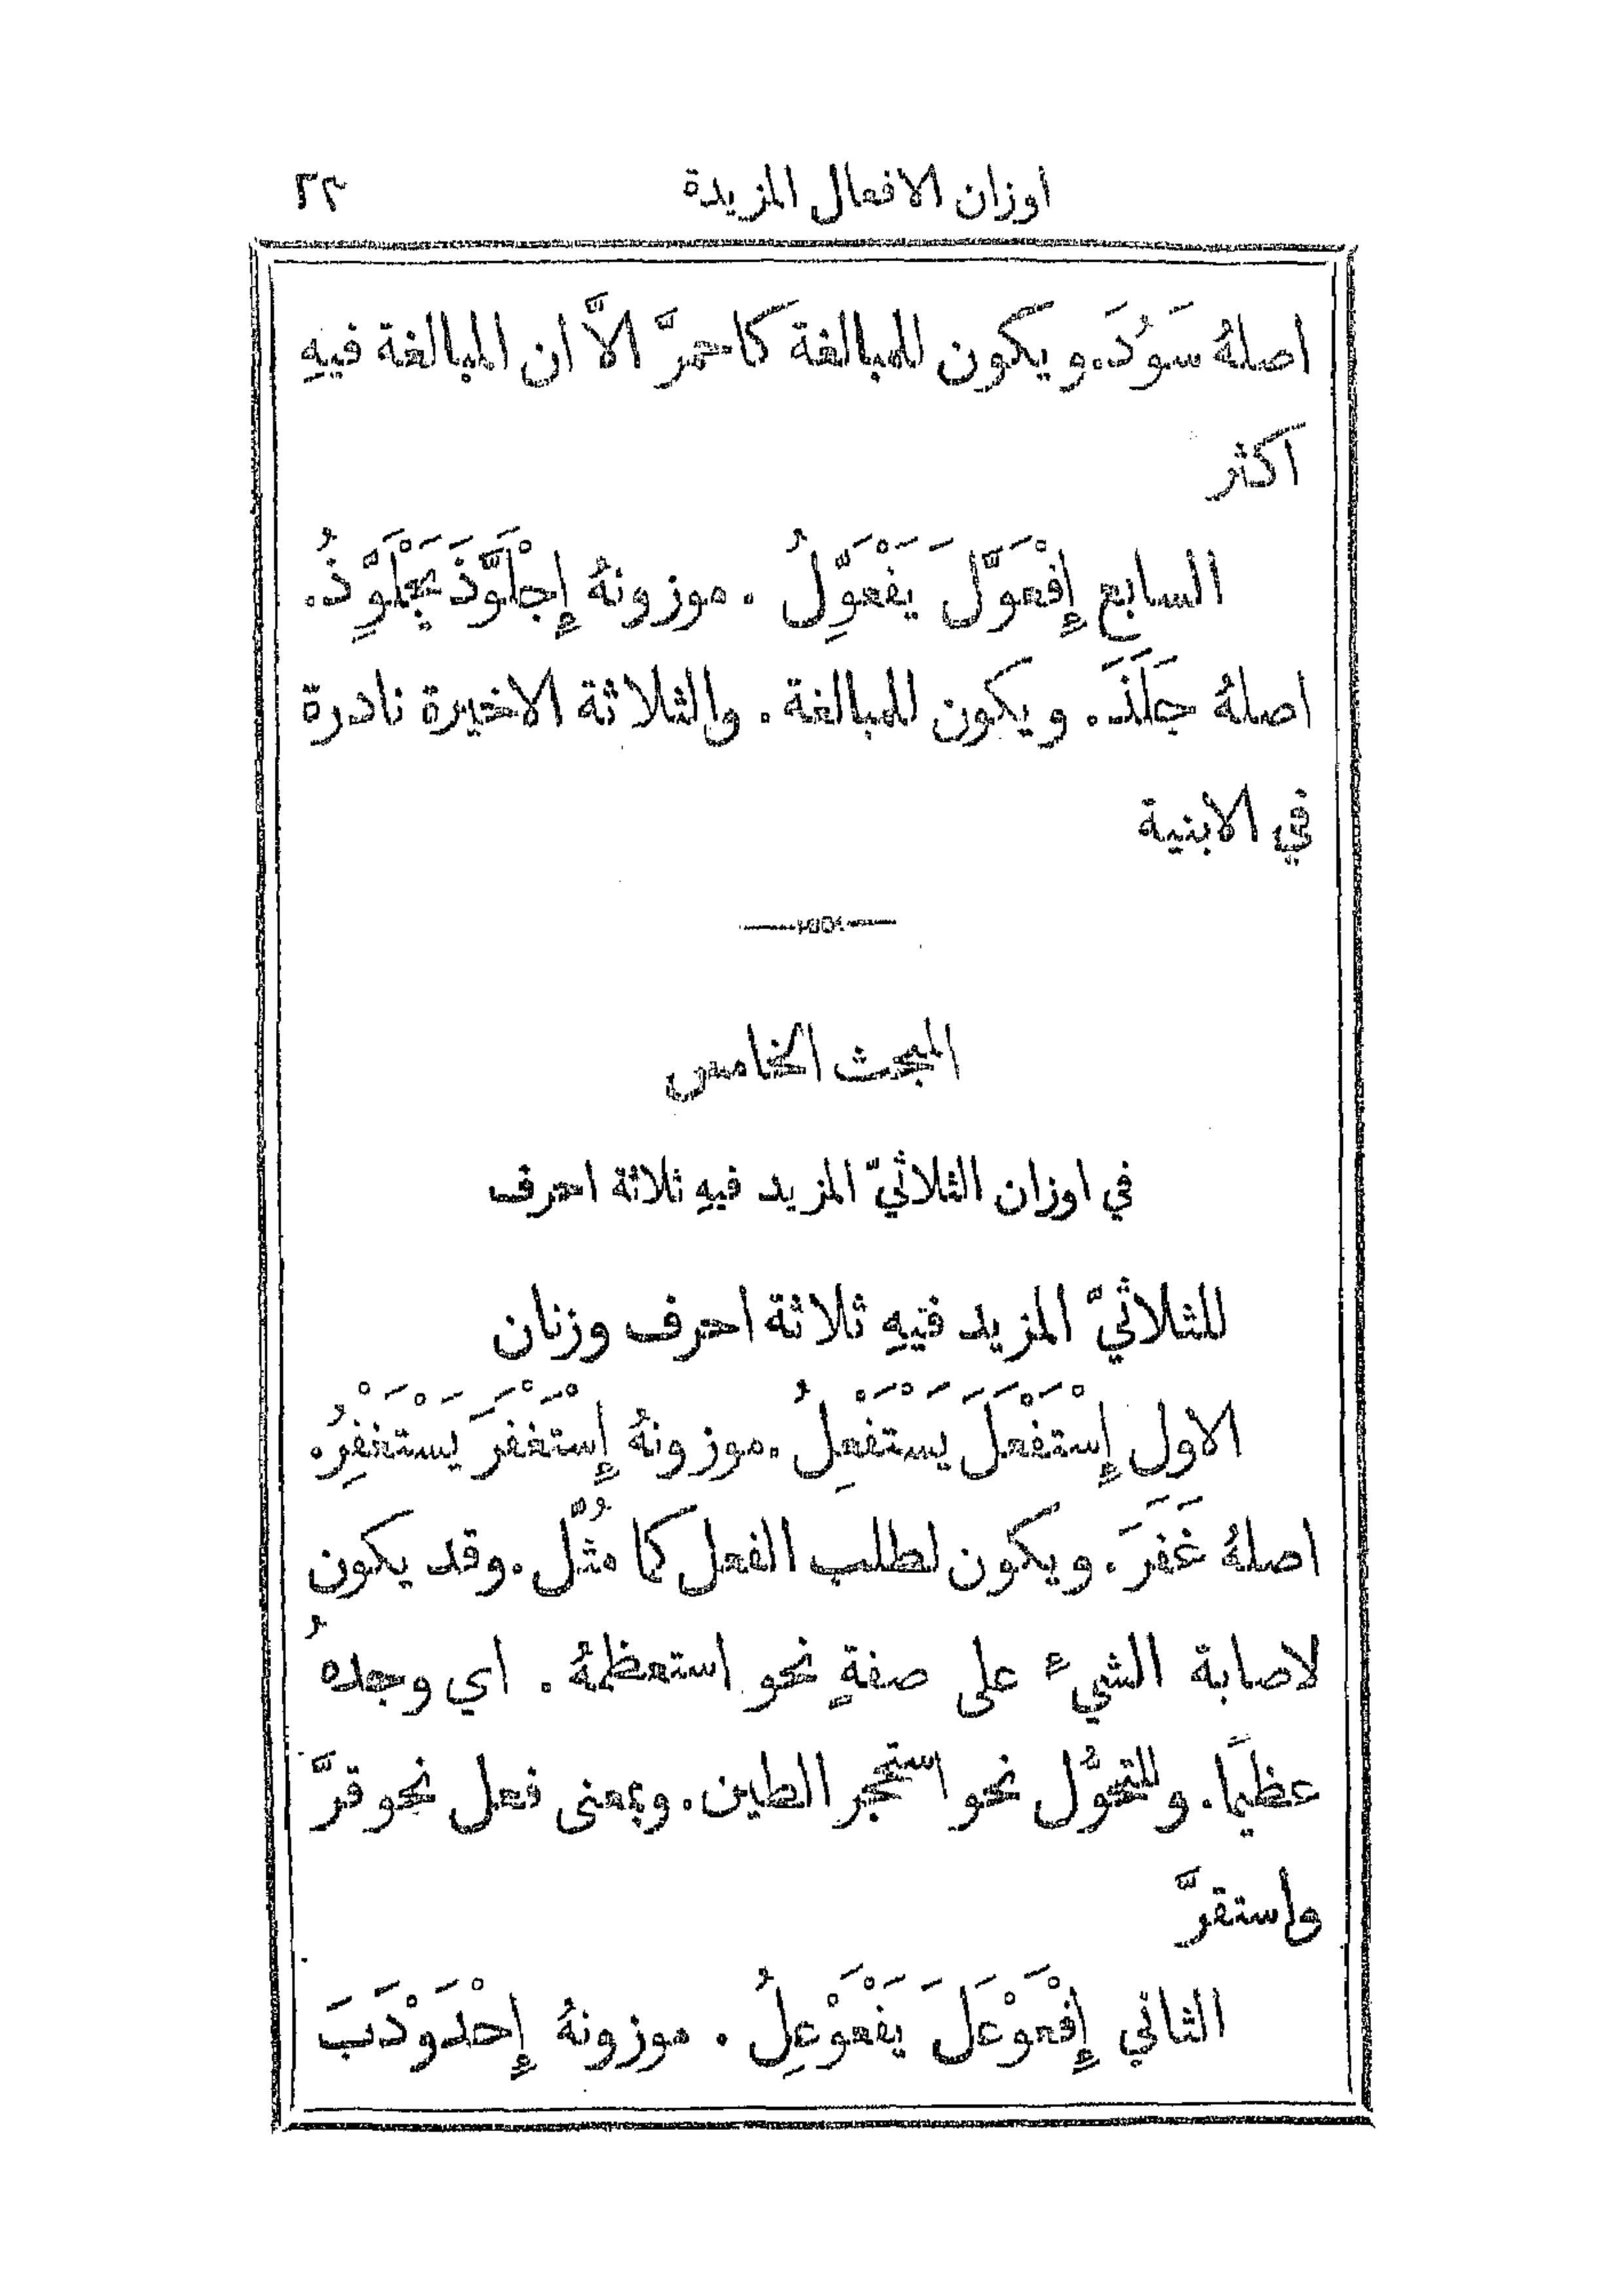 اوزان الافعال المزيدة ٢٣
اصلهُ سَوُدَ. ويكون للمبالغة كاحمرَّ الَّا ان المبالغة فيهِ
اكثر
السابع إِفْعَوَّلَ يَفْعَوِّلُ . موزونهُ إِجْلَوَّذَ يَجْلَوِّذُ.
اصلهُ جَلَذَ. ويكون للمبالغة. والثلاثة الاخيرة نادرة
في الابنية
المبحث الخامس
في اوزان الثلاثيّ المزيد فيهِ ثلاثة احرف
للثلاثيّ المزيد فيهِ ثلاثة احرف وزنان
الاول إِسْتَفْعَلَ يَسْتَفْعِلُ. موزونهُ إِسْتَغْفَرَ يَسْتَغْفِرُ.
اصلهُ غَفَرَ. ويكون لطلب الفعل كما مُثّل. وقد يكون
لاصابة الشيءِ على صفةٍ نحو استعظمهُ. اي وجدهُ
عظيمًا. وللتحوُّل نحو استحجر الطين. وبمعنى فعل نحو قرَّ
واستقرَّ
الثاني إِفْعَوْعَلَ يَفْعَوْعِلُ . موزونهُ إِحْدَوْدَبَ